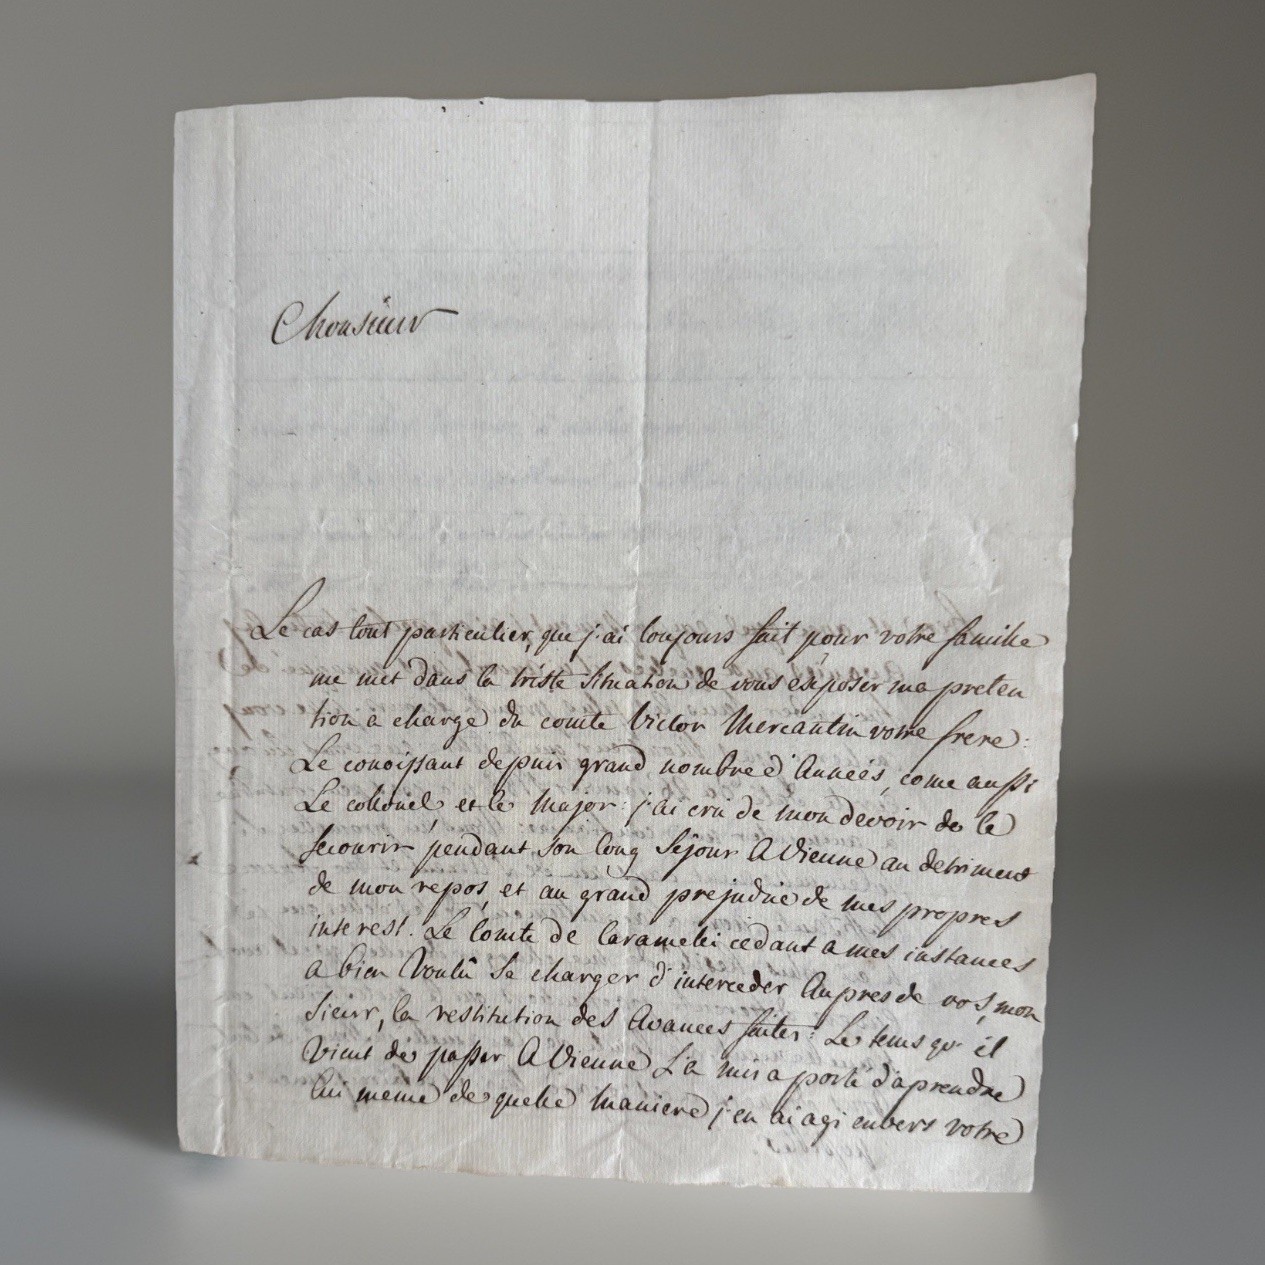 Monsieur
Le cas tout particulier, que j'ai toujours fait pour votre famille
me met dans la triste situation de vous exposer ma preten
tion a charge du comte Victor Mercantin votre frere:
Le conoissant depuis grand nombre d'Anneés, come aussi
Le collonel, et le Major: j'ai crû de mon devoir de le
secourir pendant son long Séjour A Vienne au detriment
de mon repos, et au grand prejudice de mes propres
interest. Le Comte de Caramelli cedant a mes instances
a bien Voulû se charger d'interceder Aupres de vos, mon
sieur, la restitution des Avances faites: Le tems qu'il
Vient de passer A Vienne L'a mis a porté d'aprendre
lui meme de quelle maniere j'en ai agi envers votre